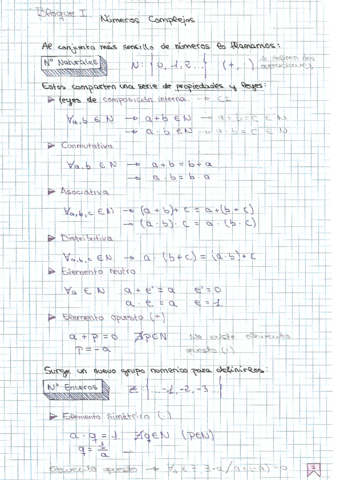 Bloque I
Números Complejos
Al conjunto más sencillo de números lo llamamos:
Nº Naturales N: { 0, 1, 2... } (+, ·)
Estos comparten una serie de propiedades y leyes:
▶ Leyes de composición interna →
∀a,b ∈ N → a + b ∈ N → a + b = c ∈ N
→ a · b ∈ N → a · b = c ∈ N
▶ Conmutativa
∀a,b ∈ N → a + b = b + a
→ a · b = b · a
▶ Asociativa
∀a,b,c ∈ N → (a + b) + c = a + (b + c)
→ (a · b) · c = a · (b · c)
▶ Distributiva
∀a,b,c ∈ N → a · (b + c) = (a · b) + c
▶ Elemento neutro
∀a ∈ N a + e' = a e' = 0
a · e = a e = 1
▶ Elemento opuesto (-)
a + p = 0 ∄p∈N No existe elemento
p = -a opuesto
Surge un nuevo grupo numerico para definirlos:
Nº Enteros Z: { ... -1, -2, -3 ... }
▶ Elemento simétrico (·)
a · q = 1 ∄q∈N (p∈N)
q = 1/a
opuesto →
1